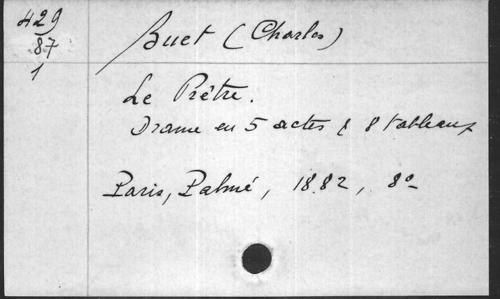 429
87
1
Buet (Charles)
Le Prêtre.
Drame en 5 actes & 8 tableaux
Paris, Palmé, 1882, 8°